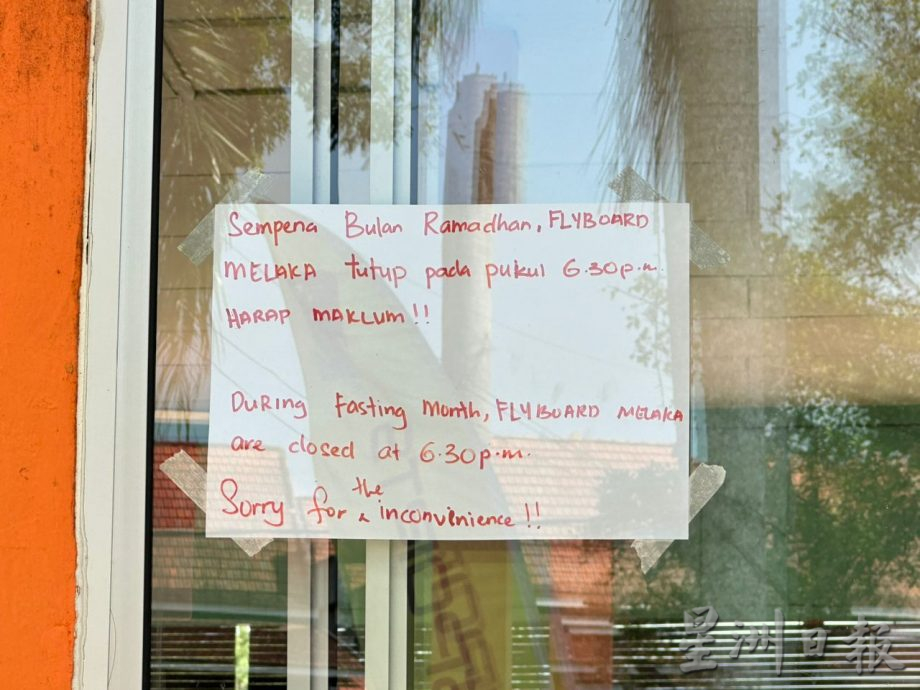 Sempena Bulan Ramadhan, FLYBOARD
MELAKA tutup pada pukul 6.30p.m.
HARAP MAKLUM!!
DURING Fasting Month, FLYBOARD MELAKA
are closed at 6.30p.m.
Sorry for the inconvinience!!
星洲日報